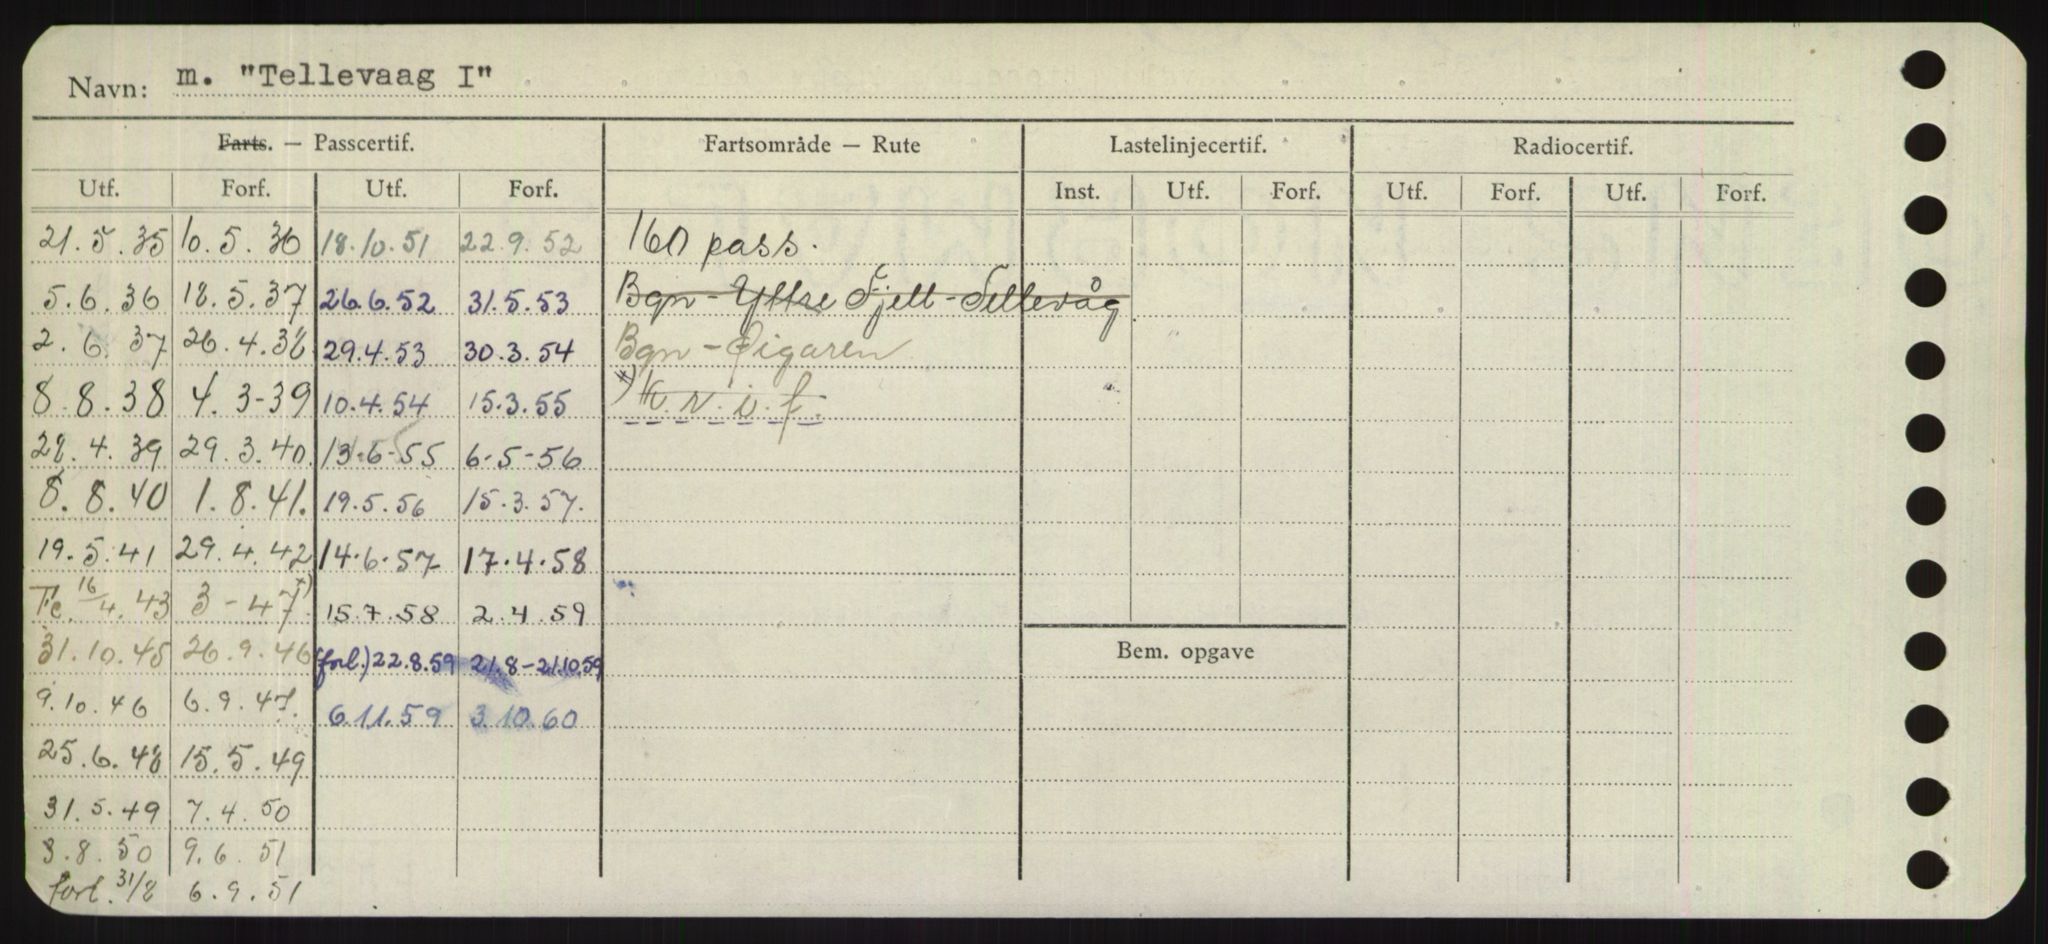 Navn: m. "Tellevaag I"
Farts. — Passcertif. Fartsområde — Rute Lastelinjecertif. Radiocertif.
Utf. Forf. Utf. Forf. Inst. Utf. Forf. Utf. Forf. Utf. Forf.
21.5.35 10.5.36 18.10.51 22.9.52 160 pass.
5.6.36 18.5.37 26.6.52 31.5.53 Bgn - Yttre Fjell - Tellevåg
2.6.37 26.4.38 29.4.53 30.3.54 Bgn -
8.8.38 4.3-39 10.4.54 15.3.55 *) k.r.i.f.
28.4.39 29.3.40 13.6-55 6-5-56
8.8.40 1.8.41. 19.5.56 15.3.57.
19.5.41 29.4.42 14.6.57 17.4.58
Fc. 16/4.43 3-47 *) 15.7.58 2.4.59
31.10.45 26.9.46 (forl.) 22.8.59 21.8-21.10.59
Bem. opgave
9.10.46 6.9.47. 6.11.59 3.10.60
25.6.48 15.5.49
31.5.49 7.4.50
3.8.50 9.6.51
forl. 31/8 6.9.51